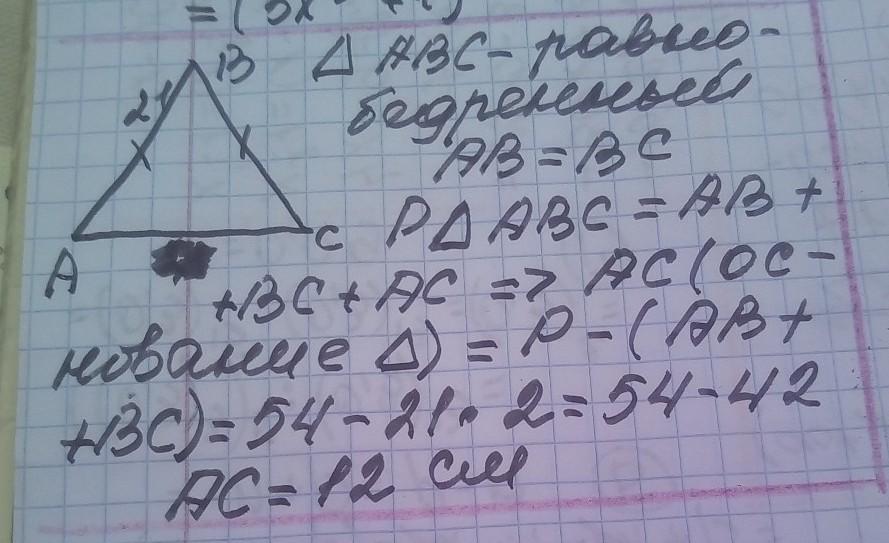 = (
21
B
A
C
Δ ABC - равно-
бедренный
AB = BC
PΔ ABC = AB +
+BC + AC => AC (ос-
нование Δ) = P - (AB +
+BC) = 54 - 21 · 2 = 54 - 42
AC = 12 см